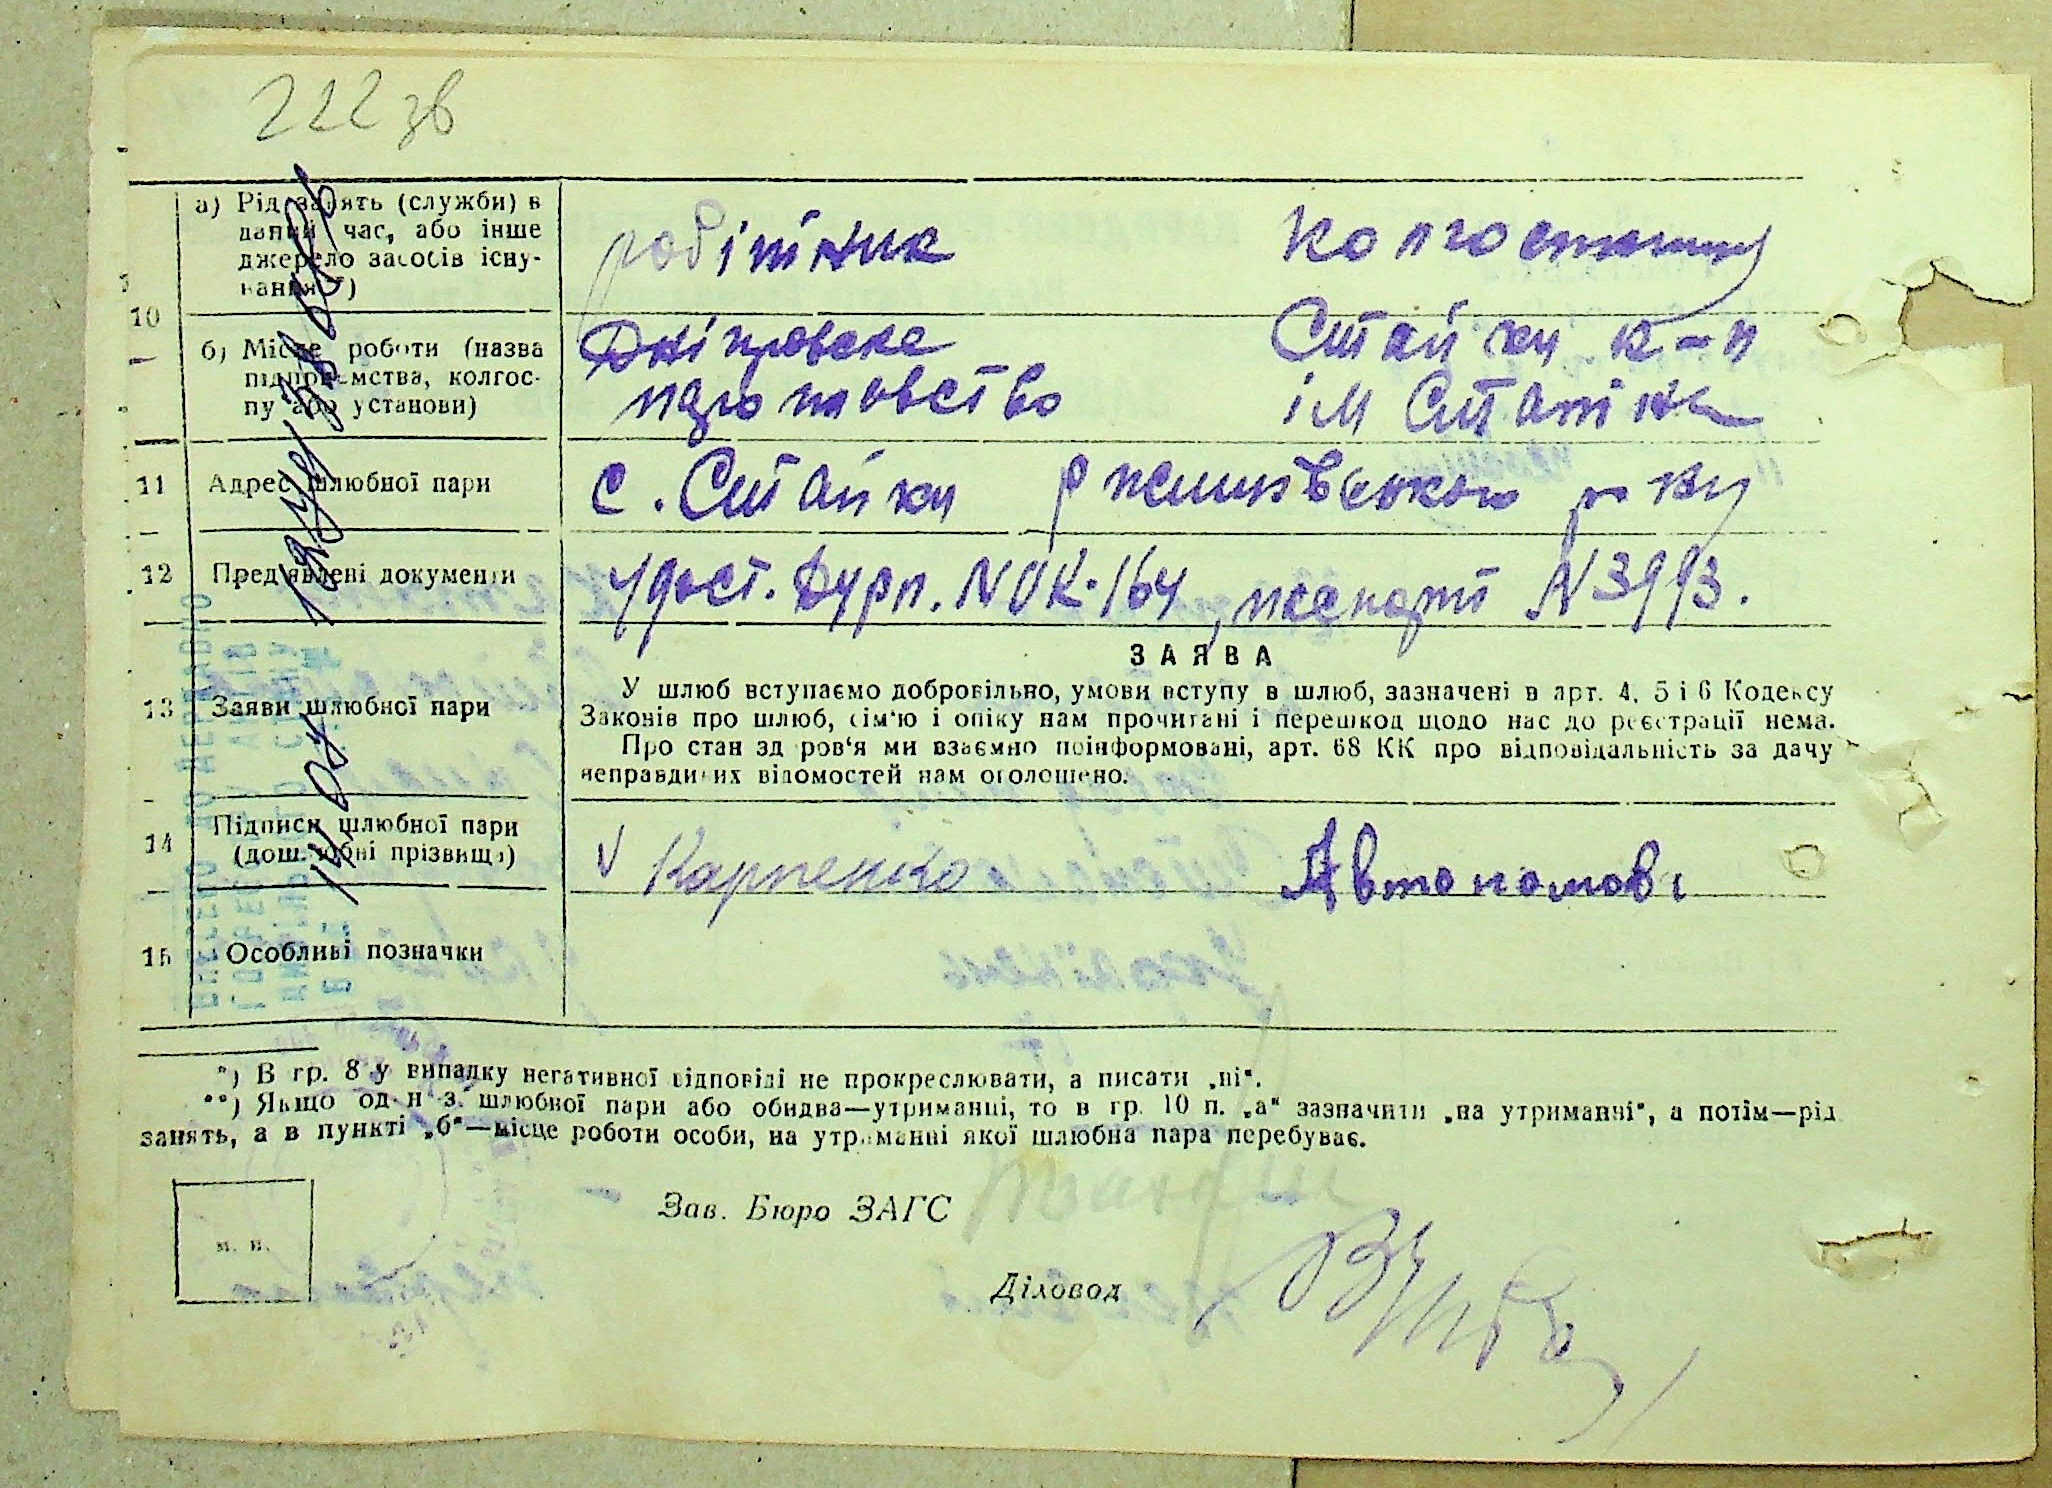 222 зв
а) Рід занять (служби) в
даний час, або інше
джерело засобів існу-
вання**)
робітник
колгоспниц
10
б) Місце роботи (назва
підприємства, колгос-
пу або установи)
Дніпровске
Стайки к-п
ім Сталіна
11 Адрес шлюбної пари
с. Стайки Ржищівського р-ну
12 Пред'явлені документи
Удост. № UK-164, № 3993.
ЗАЯВА
13 Заяви шлюбної пари
У шлюб вступаємо добровільно, умови вступу в шлюб, зазначені в арт. 4, 5 і 6 Кодексу
Законів про шлюб, сім'ю і опіку нам прочитані і перешкод щодо нас до реєстрації нема.
Про стан здоров'я ми взаємно поінформовані, арт. 68 КК про відповідальність за дачу
неправдивих відомостей нам оголошено.
14 Підписи шлюбної пари
(дошлюбні прізвища)
V Карпенко
Автономова
15 Особливі позначки
*) В гр. 8 у випадку негативної відповіді не прокреслювати, а писати „ні“.
**) Якщо один з шлюбної пари або обидва—утриманні, то в гр. 10 п. „а“ зазначити „на утриманні“, а потім—рід
занять, а в пункті „б“—місце роботи особи, на утриманні якої шлюбна пара перебуває.
м. п.
Зав. Бюро ЗАГС
Діловод